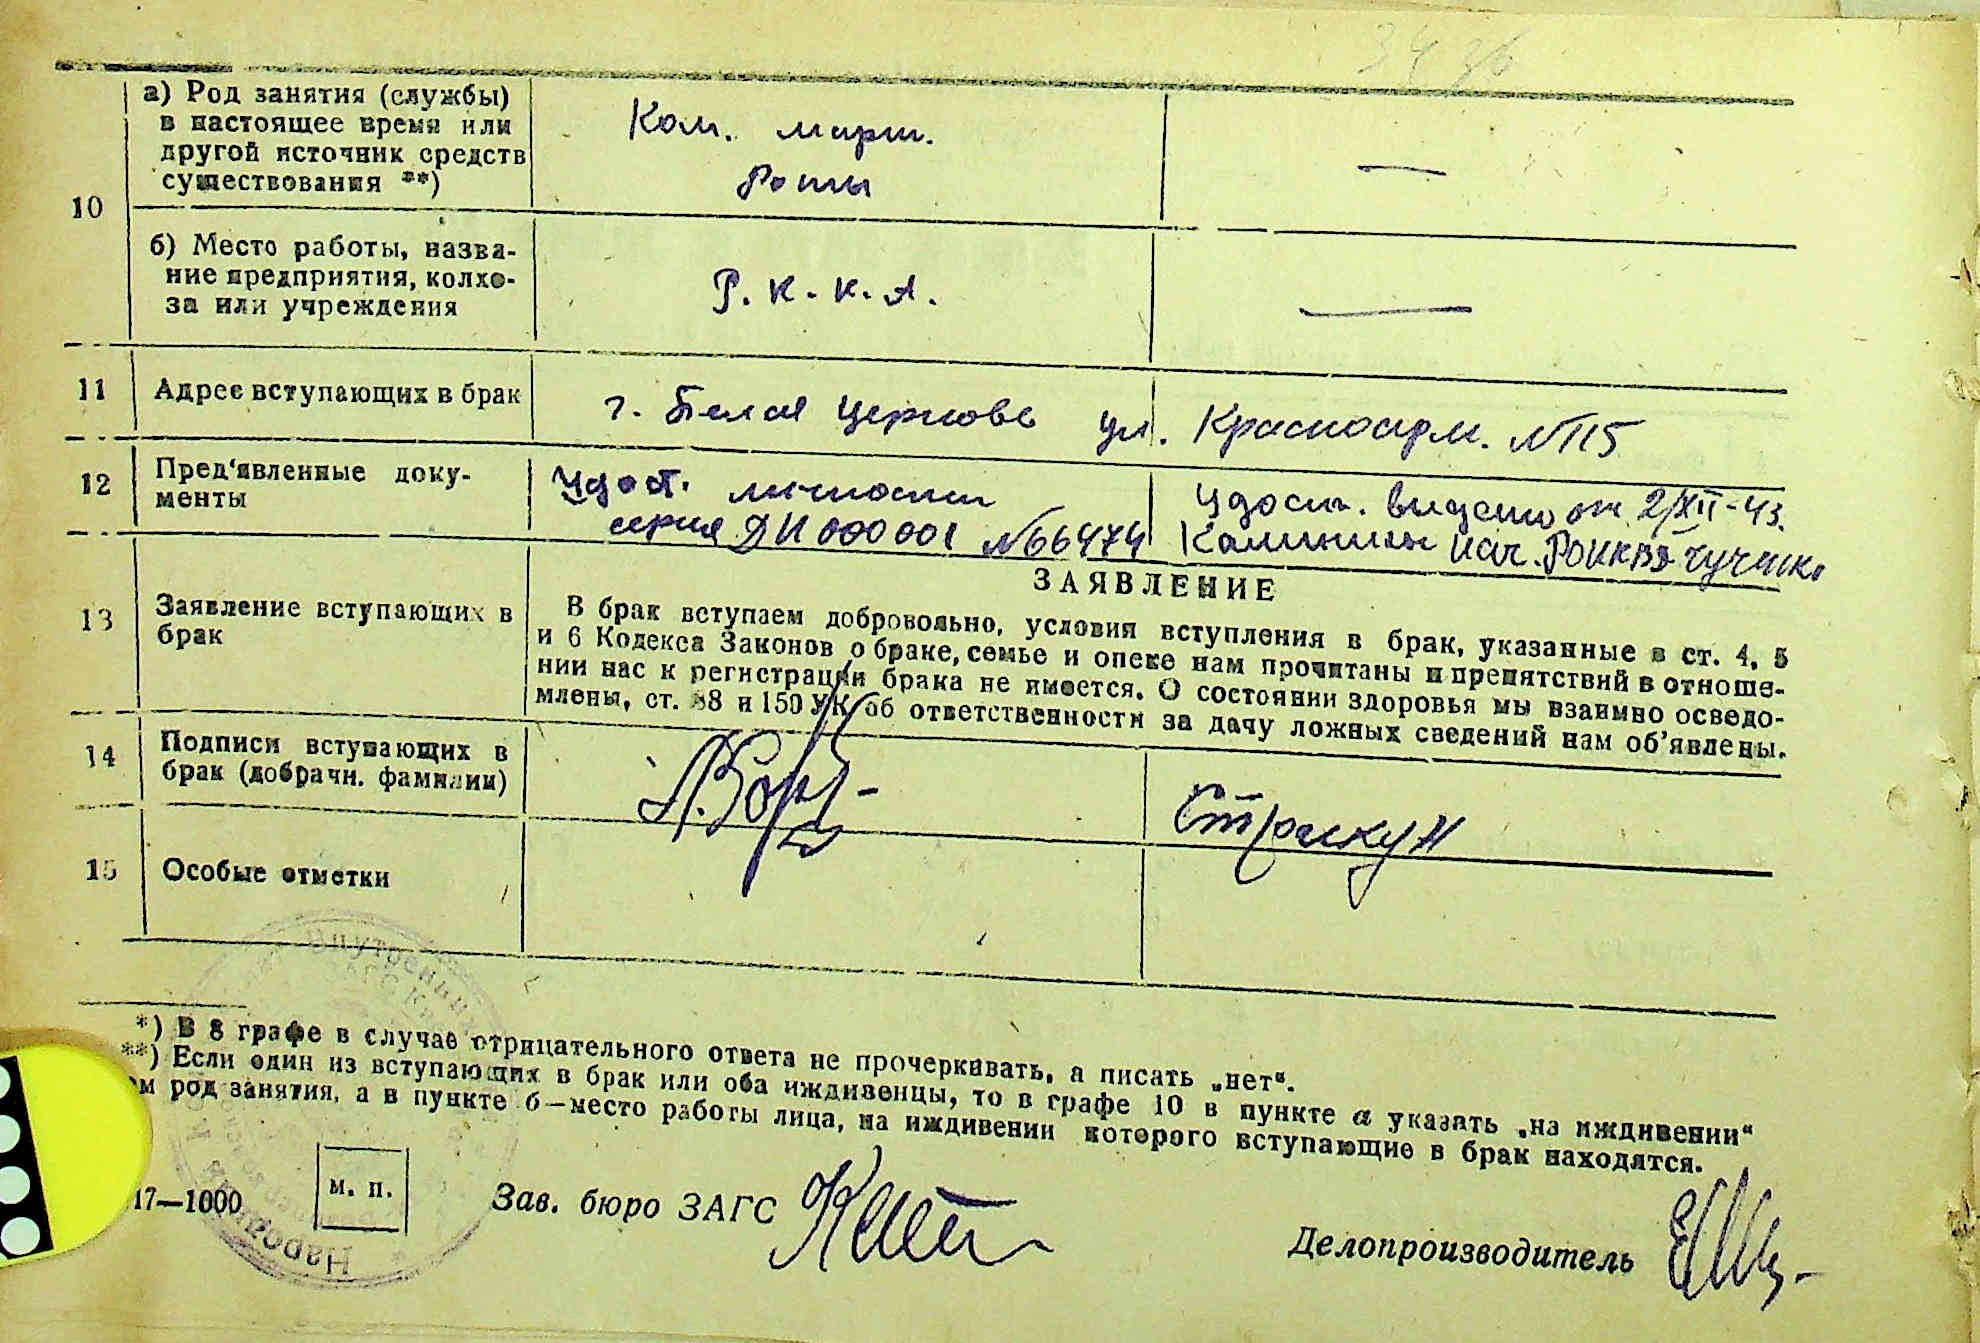 34 36
10
а) Род занятия (службы)
в настоящее время или
другой источник средств
существования **)
Ком. марш.
роты
—
б) Место работы, назва-
ние предприятия, колхо-
за или учреждения
Р. К. К. А.
—
11
Адрес вступающих в брак
г. Белая Церковь ул. Красноарм. №115
12
Пред'явленные доку-
менты
Удост. личности
серия ДИ 000001 №66474
Удост. видано от 2/XII-43.
нач.
13
Заявление вступающих в
брак
ЗАЯВЛЕНИЕ
В брак вступаем добровольно, условия вступления в брак, указанные в ст. 4, 5
и 6 Кодекса Законов о браке, семье и опеке нам прочитаны и препятствий в отноше-
нии нас к регистрации брака не имеется. О состоянии здоровья мы взаимно осведо-
млены, ст. 88 и 150 УК об ответственности за дачу ложных сведений нам об'явлены.
14
Подписи вступающих в
брак (добрачн. фамилии)
Страскун
15
Особые отметки
*) В 8 графе в случае отрицательного ответа не прочеркивать, а писать „нет“.
**) Если один из вступающих в брак или оба иждивенцы, то в графе 10 в пункте а указать „на иждивении“
род занятия, а в пункте б—место работы лица, на иждивении которого вступающие в брак находятся.
17—1000
м. п.
Зав. бюро ЗАГС
Делопроизводитель
Внутренних
Народный